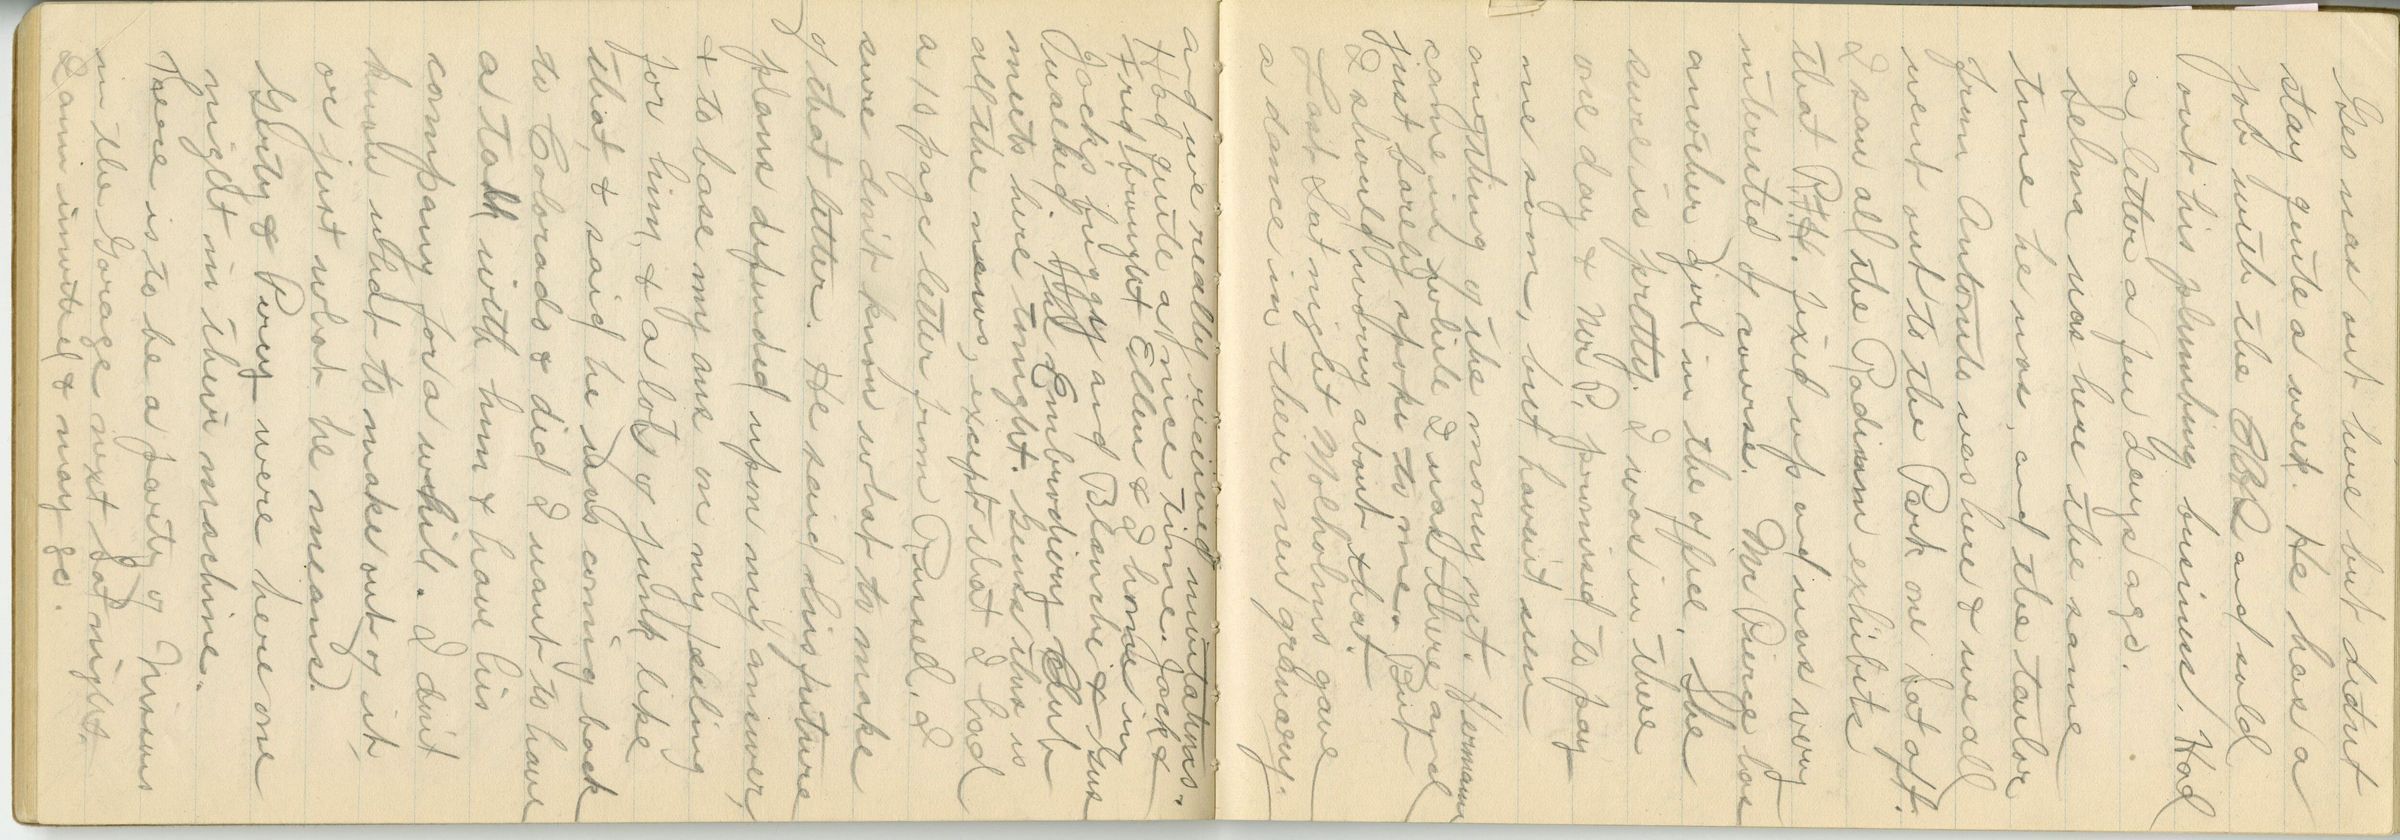 Geo was out here but didnt
stay quite a week. He has a
job with the and sold
out his plumbing business. Had
a letter a few days ago.
Selma was here the same
time he was, and the tailor
from Antonito was here & we all
went out to the Park one Sat aft.
I saw all the Radium exhibits
that R.H. fixed up and was very
interested of course. Mr Pierce has
another girl in the office. She
sure is pretty. I was in there
one day & Mr P. promised to pay
me soon, but haven't seen
anything of the money yet. Herman
came in while I was there and
just barely spoke to me. But
I should worry about that.
Last Sat night Molholms gave
a dance in their new granary.
and we really received invitations.
Had quite a nice time. Jack &
Fred brought Ellen & I home in
Jack's buggy and Blanche & Gus
walked. The Embrodiery Club
meets here tonight. Guess this is
all the news, except that I had
a 10 page letter from Russel. I
sure don't know what to make
of that letter. He said his future
plans depended upon my answer,
& to base my ans on my feeling
for him, & a lot of junk like
that, & said he was coming back
to Colorado & did I want to have
a talk with him & have his
company for a while. I don't
know what to make out of it,
or just what he means.
Gerty & Percy were here one
night in their machine.
There is to be a party of
in the Garage next Sat night.
I am invited & may go.